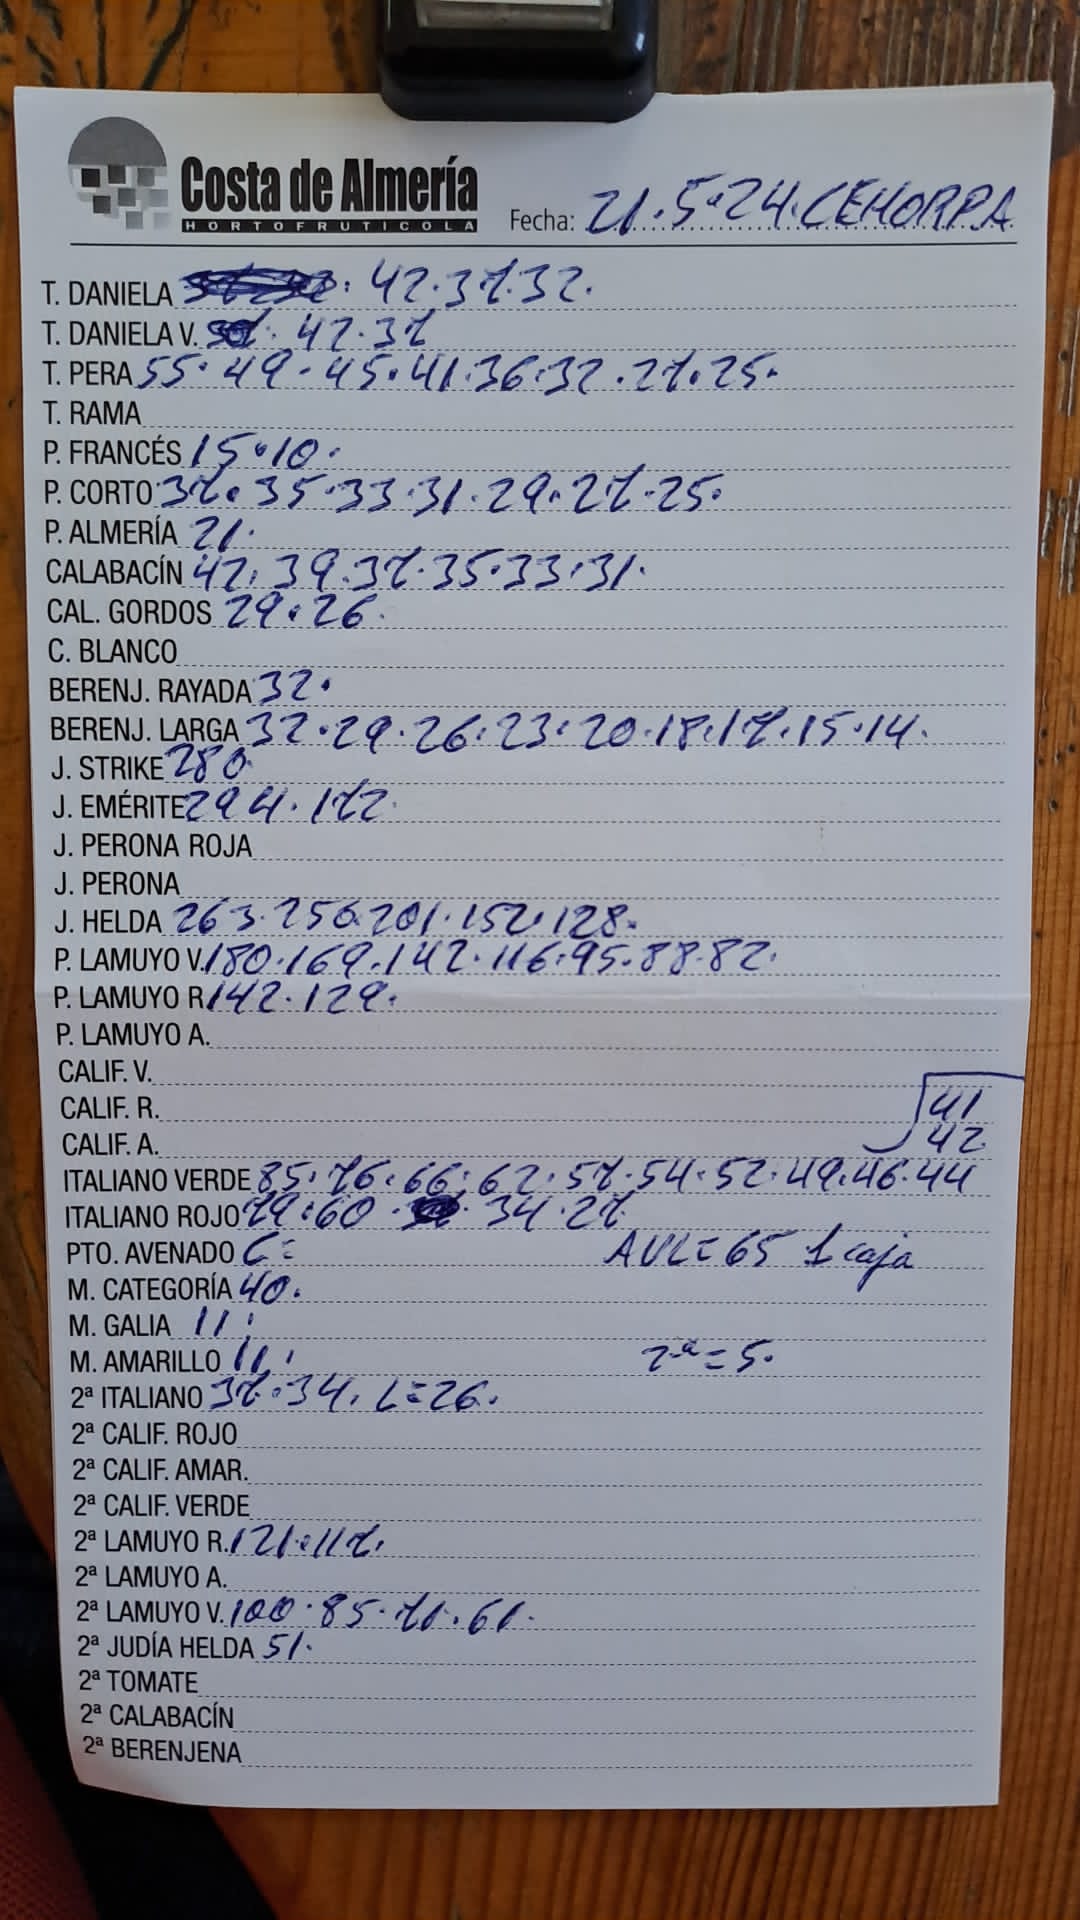 Costa de Almería
HORTOFRUTICOLA
Fecha: 21.5.24. CEHORPA
T. DANIELA 42.37.32.
T. DANIELA V. 42.37
T. PERA 55.49.45.41.36.32.27.25.
T. RAMA
P. FRANCÉS 15.10.
P. CORTO 37.35.33.31.29.27.25.
P. ALMERÍA 21.
CALABACÍN 42.39.37.35.33.31.
CAL. GORDOS 29.26.
C. BLANCO
BERENJ. RAYADA 32.
BERENJ. LARGA 32.29.26.23.20.18.17.15.14.
J. STRIKE 280
J. EMÉRITE 294.172
J. PERONA ROJA
J. PERONA
J. HELDA 263.250.201.152.128.
P. LAMUYO V. 180.169.142.116.95.88.82.
P. LAMUYO R 142.129.
P. LAMUYO A.
CALIF. V.
CALIF. R. 41
CALIF. A. 42
ITALIANO VERDE 85.76.66.62.57.54.52.49.46.44
ITALIANO ROJO 79.60. 34.27
PTO. AVENADO C= AVL=65 1 caja
M. CATEGORÍA 40.
M. GALIA 11
M. AMARILLO 11 2ª=5.
2ª ITALIANO 37.34. L=26.
2ª CALIF. ROJO
2ª CALIF. AMAR.
2ª CALIF. VERDE
2ª LAMUYO R. 121.117.
2ª LAMUYO A.
2ª LAMUYO V. 100.85.71.61.
2ª JUDÍA HELDA 51.
2ª TOMATE
2ª CALABACÍN
2ª BERENJENA